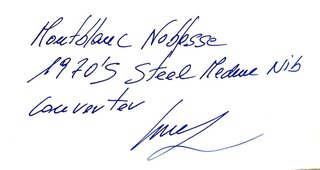 Montblanc Noblesse
1970's Steel Medium Nib
Converter